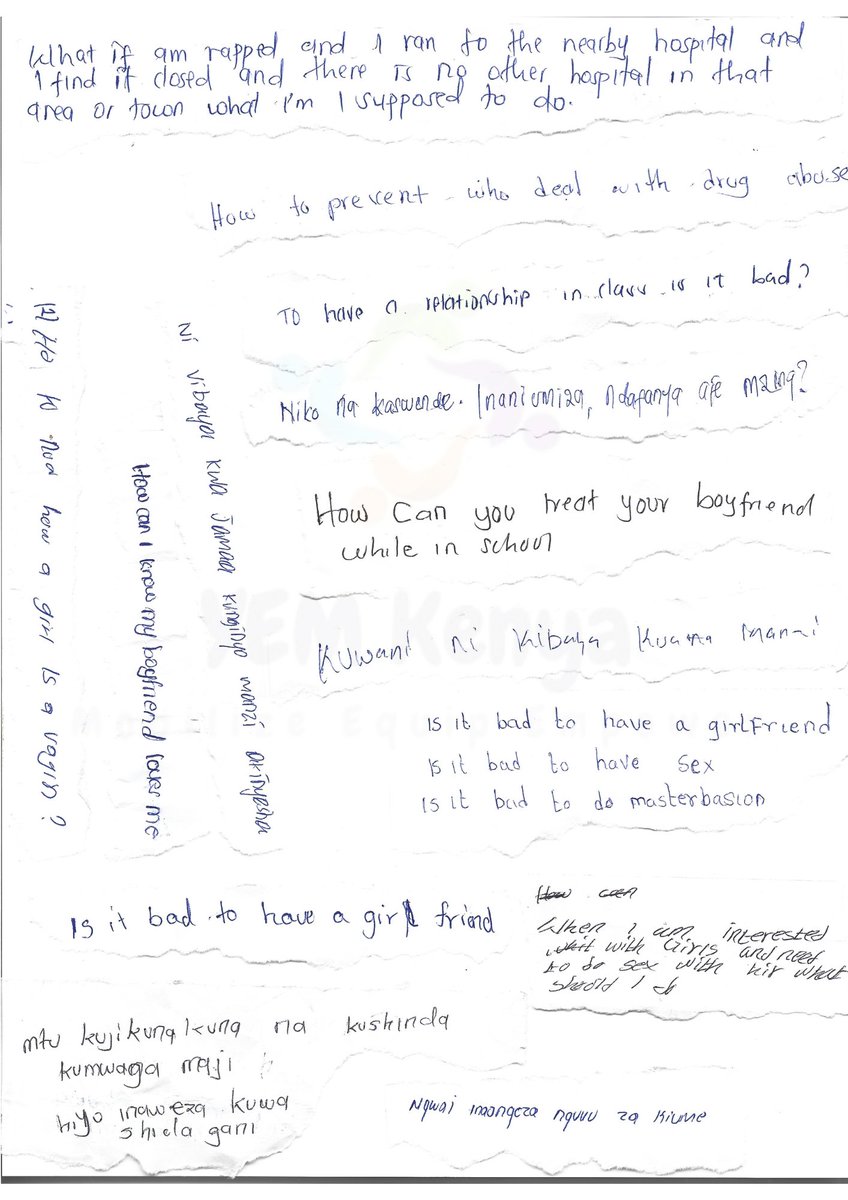 What if am rapped and I ran to the nearby hospital and
I find it closed and there is no other hospital in that
area or town what I'm I supposed to do.
How to prevent who deal with drug abuse
To have a relationship in class is it bad?
Niko na kaswende. Inaniumiza, ndafanya aje mang?
How Can you treat your boyfriend
while in school
Kuwani ni kibaya Kuama manzi
Is it bad to have a girlfriend
Is it bad to have sex
Is it bad to do masterbasion
Ho to nod how a girl is a vagin?
How can I know my boyfriend loves me
Ni vibaya kwa Jamaa kunginyo manzi akinyesha
Is it bad to have a girl friend
How can
When I am interested
wait with Girls and need
to do sex with hir what
should I do
mtu kujikunakuna na kushinda
kumwaga maji
hiyo inaweza kuwa
shida gani
Ngwai inaongeza nguvu za kiume
YEM Kenya
Mobilize Equip Empower